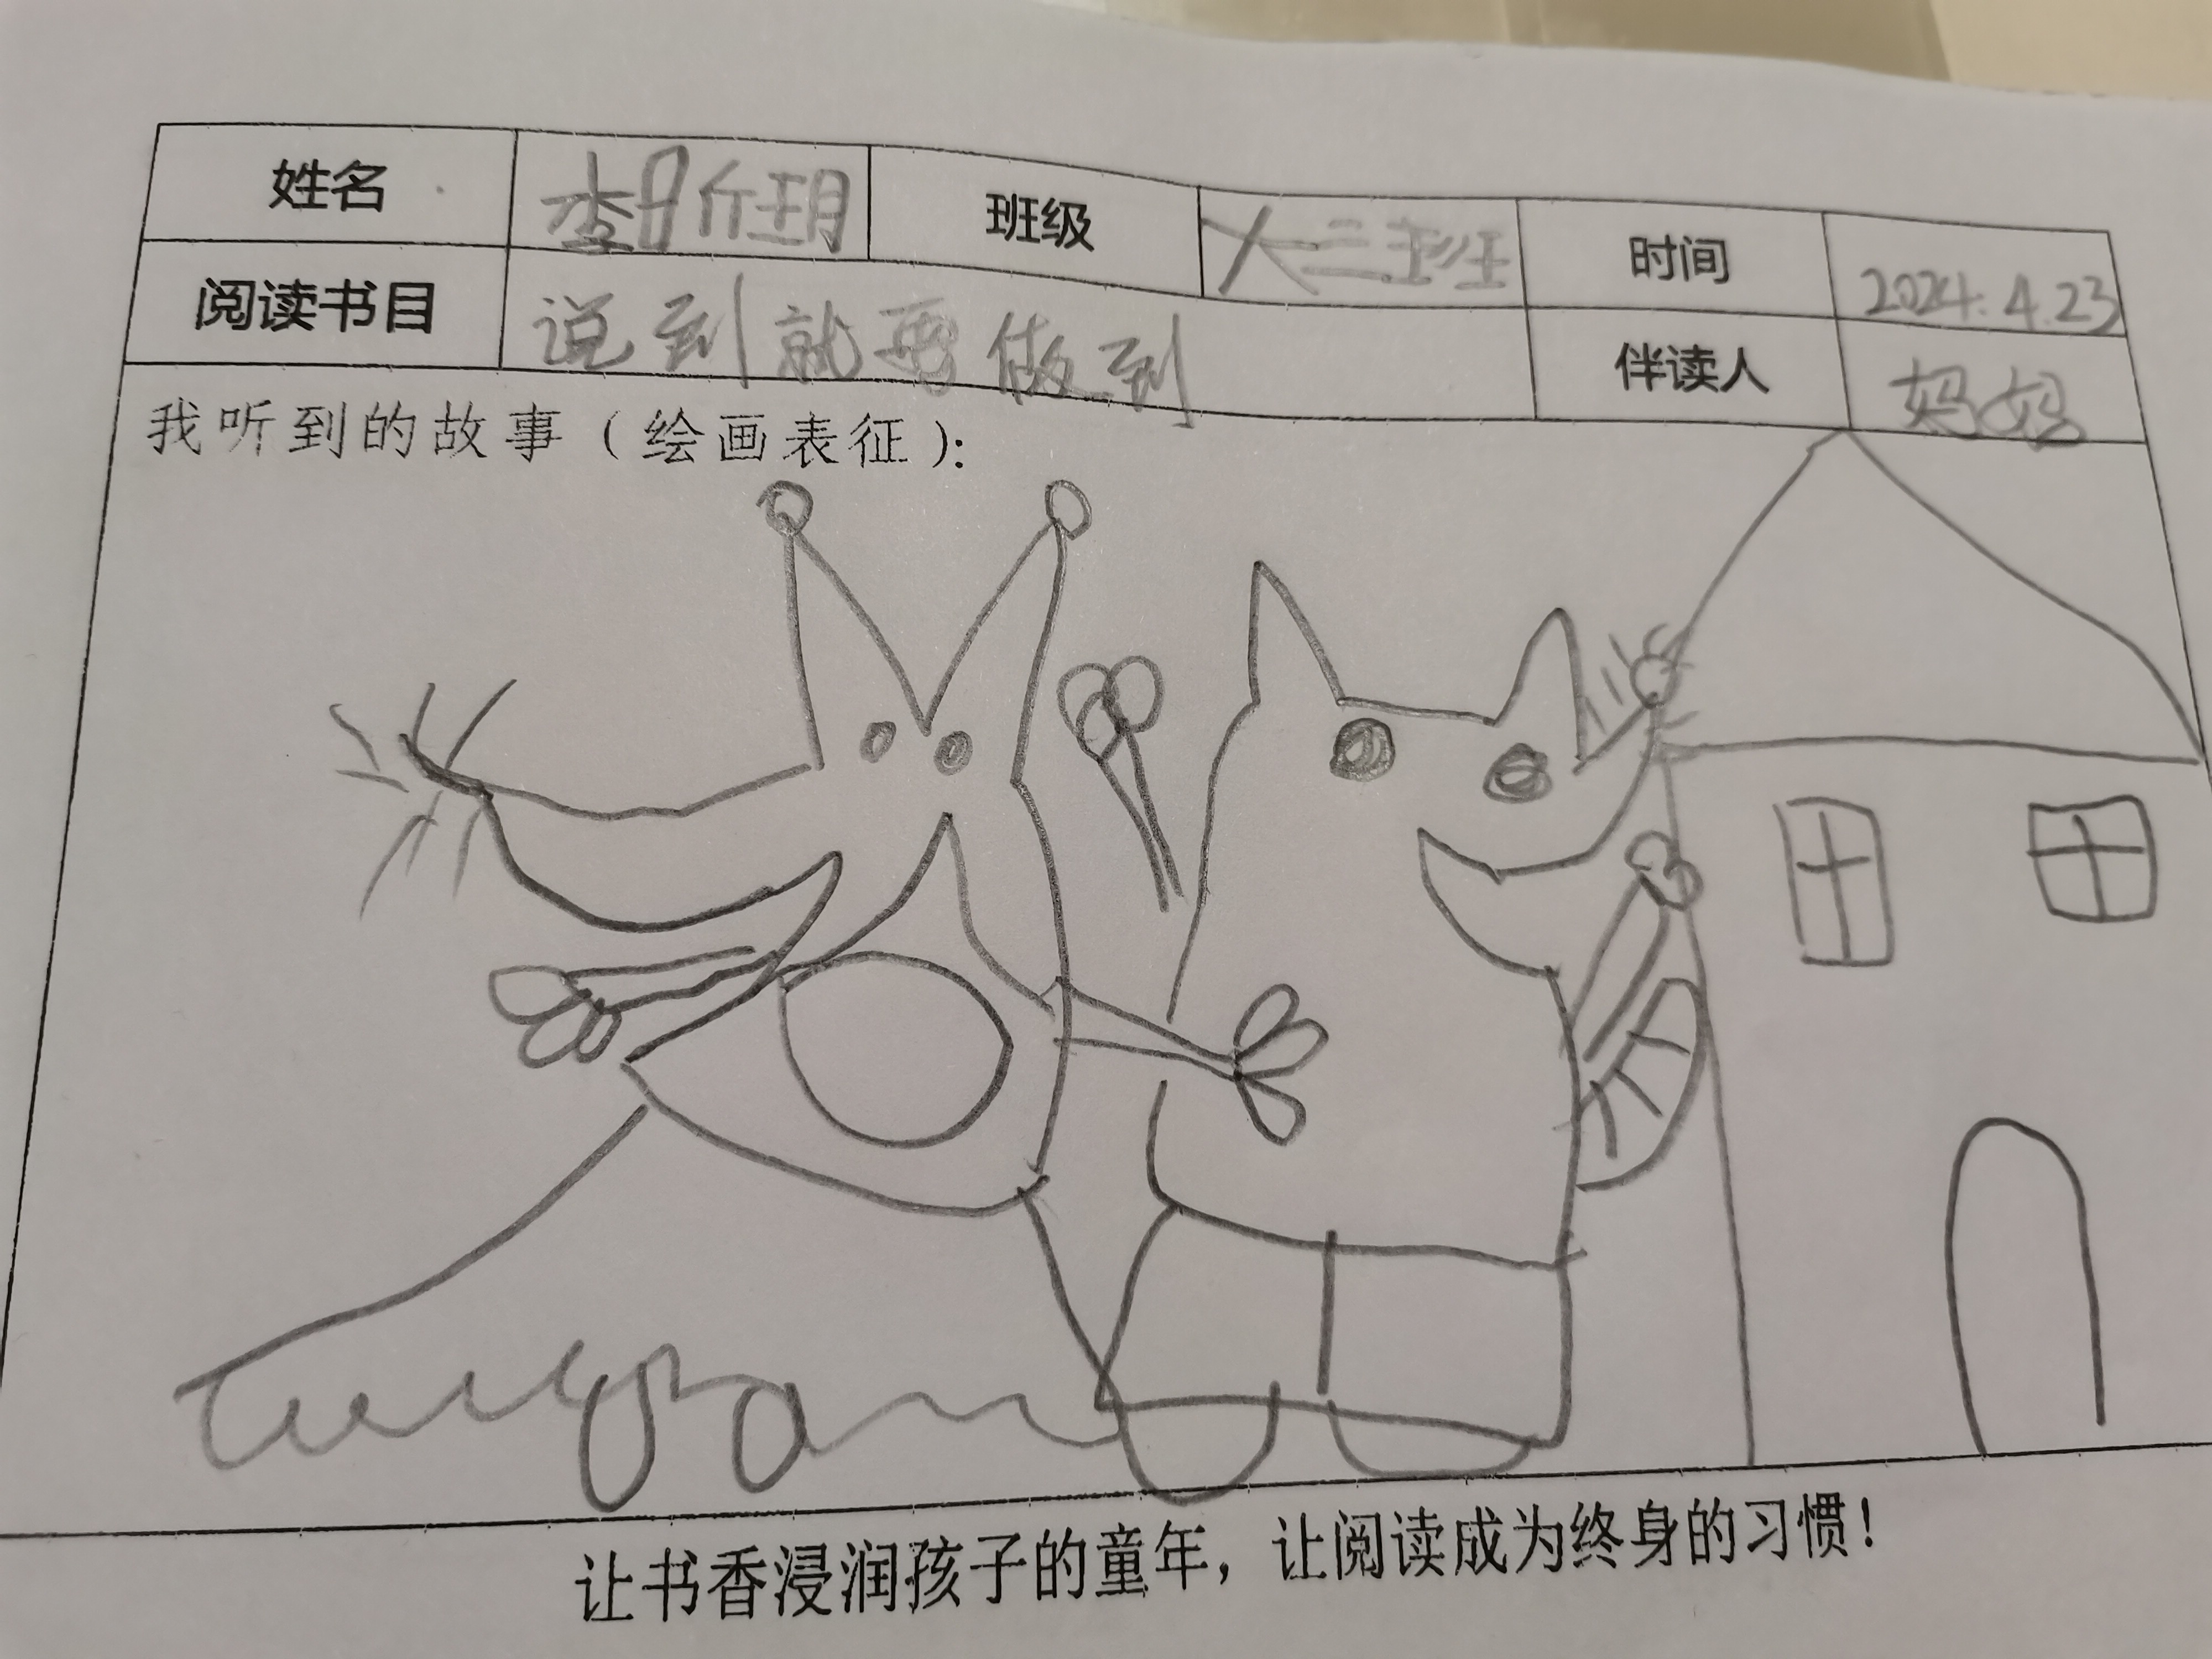 姓名 李昕玥 班级 大三班 时间 2024.4.23
阅读书目 说到就要做到 伴读人 妈妈
我听到的故事（绘画表征）：
让书香浸润孩子的童年，让阅读成为终身的习惯！